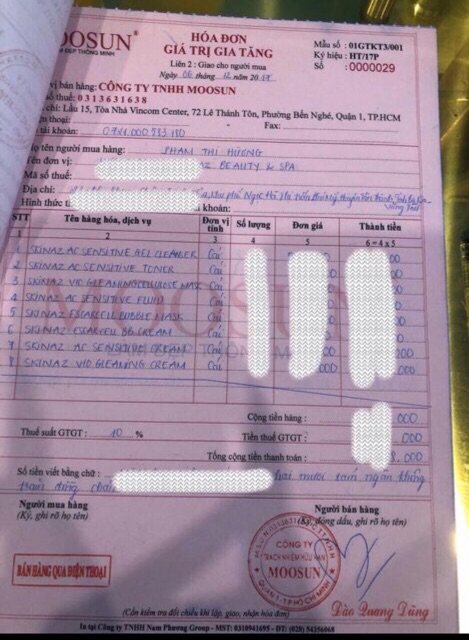 MOOSUN®
ĐẸP THÔNG MINH
HÓA ĐƠN
GIÁ TRỊ GIA TĂNG
Liên 2 : Giao cho người mua
Ngày 06 tháng 12 năm
Mẫu số : 01GTKT3/001
Ký hiệu : HT/17P
Số : 0000029
vị bán hàng: CÔNG TY TNHH MOOSUN
số thuế: 0313631638
chỉ: Lầu 15, Tòa Nhà Vincom Center, 72 Lê Thánh Tôn, Phường Bến Nghé, Quận 1, TP.HCM
thoại: Fax:
tài khoản:
Họ tên người mua hàng: PHẠM THỊ HƯƠNG
Tên đơn vị: BEAUTY & SPA
Mã số thuế:
Địa chỉ:
Hình thức khoản:
STT Tên hàng hóa, dịch vụ Đơn vị tính Số lượng Đơn giá Thành tiền
1 2 3 4 5 6 = 4 x 5
1 SKINAZ AC SENSITIVE GEL CLEANER Cái 00
2 SKINAZ AC SENSITIVE TONER Cái
3 SKINAZ VIO GLEANING CELLULOSE MASK Cái
4 SKINAZ AC SENSITIVE FLUID Cái
5 SKINAZ EXSARCELL BUBBLE MASK Cái
6 SKINAZ EXSARCELL BB CREAM Cái
7 SKINAZ AC SENSITIVE CREAM Cái 000
8 SKINAZ VIO GLEANING CREAM Cái 000 000
MOOSUN
Cộng tiền hàng : 000
Thuế suất GTGT : 10 % Tiền thuế GTGT : 000
Tổng cộng tiền thanh toán : 8.000
Số tiền viết bằng chữ : hai mươi tám ngàn không
trăm đồng chẵn
Người mua hàng
(Ký, ghi rõ họ tên)
Người bán hàng
(Ký, đóng dấu, ghi rõ họ tên)
BÁN HÀNG QUA ĐIỆN THOẠI
CÔNG TY
TRÁCH NHIỆM HỮU HẠN
MOOSUN
QUẬN 1 - TP HỒ CHÍ MINH
Đào Quang Dũng
(Cần kiểm tra đối chiếu khi lập, giao, nhận hóa đơn)
In tại Công ty TNHH Nam Phương Group - MST: 0310941695 - ĐT: (028) 54356068